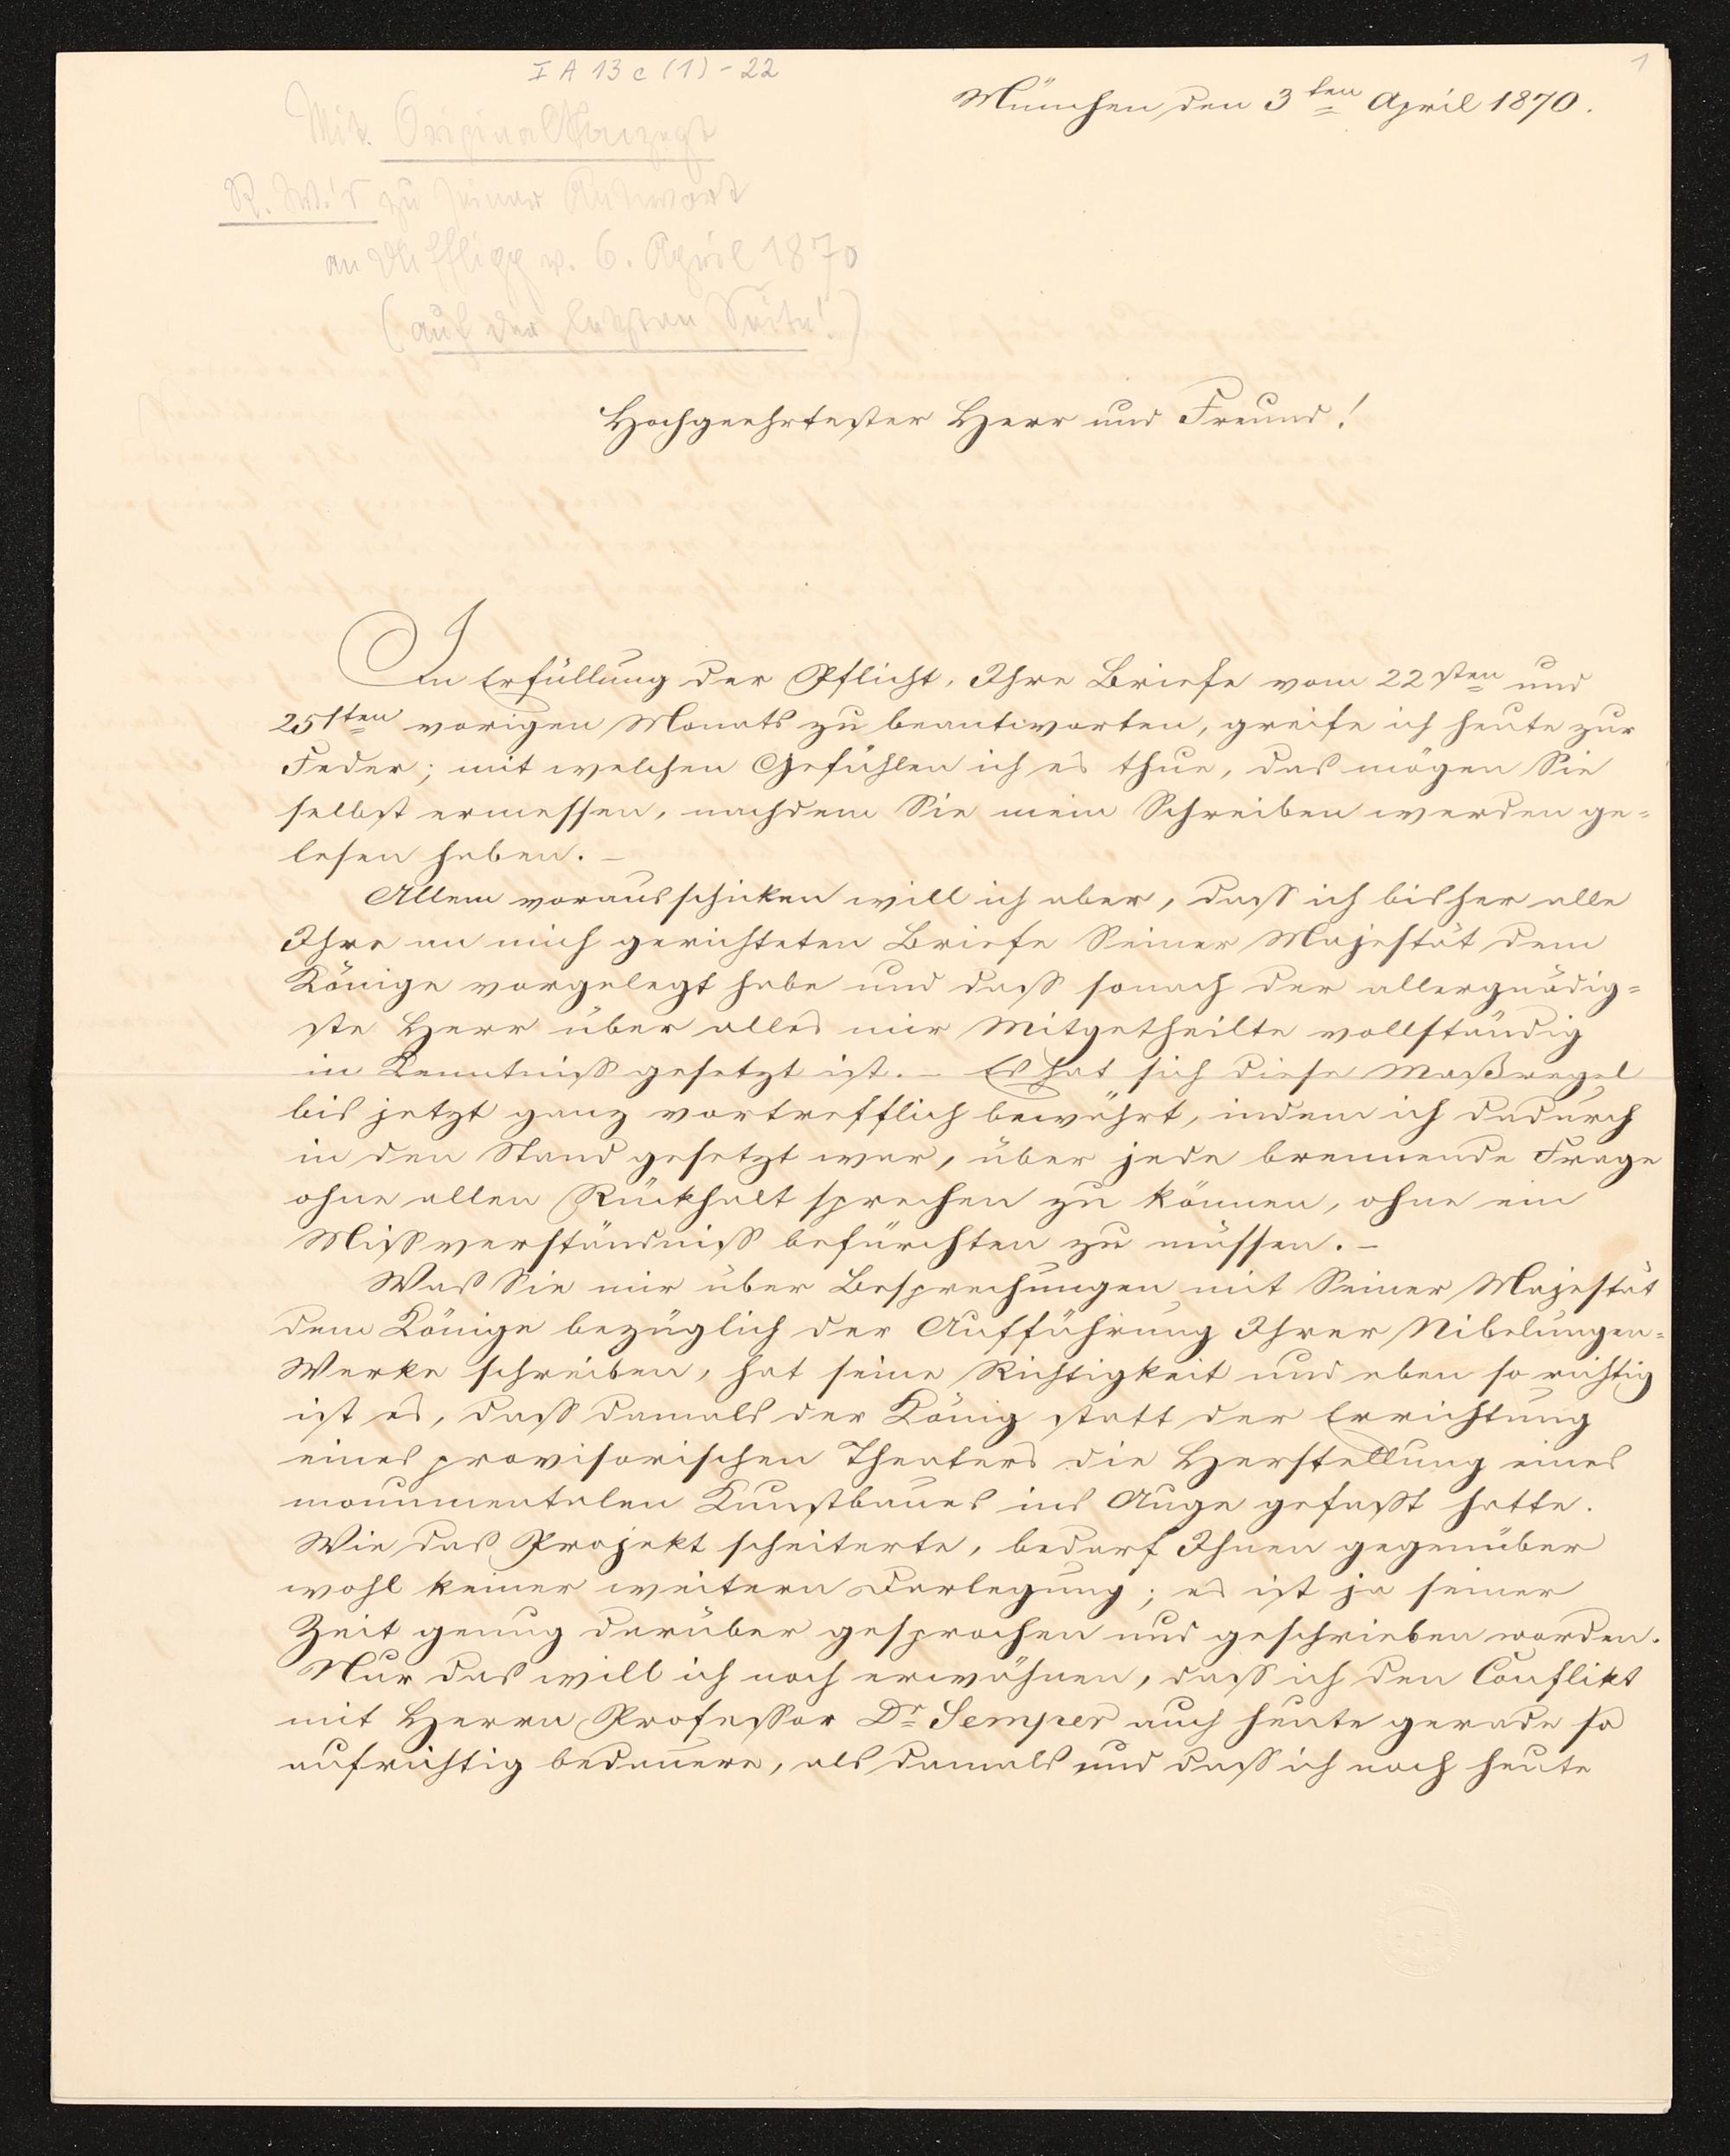 I A 13 c (1) - 22
1
München den 3ten April 1870.
Mit Originalkonzept
R. W.'s zu seiner Antwort
an Düfflipp v. 6. April 1870
(auf der letzten Seite!)
Hochgeehrtester Herr und Freund!
In Erfüllung der Pflicht, Ihre Briefe vom 22sten und
25sten vorigen Monats zu beantworten, greife ich heute zur
Feder; mit welchen Gefühlen ich es thue, das mögen Sie
selbst ermessen, nachdem Sie mein Schreiben werden ge=
lesen haben. –
Allem vorausschicken will ich aber, dass ich bisher alle
Ihre an mich gerichteten Briefe Seiner Majestät dem
Könige vorgelegt habe und dass sonach der allergnädig=
ste Herr über alles mir Mitgetheilte vollständig
in Kenntniss gesetzt ist. – Es hat sich diese Maßregel
bis jetzt ganz vortrefflich bewährt, indem ich dadurch
in den Stand gesetzt war, über jede brennende Frage
ohne allen Rückhalt sprechen zu können, ohne ein
Missverständniss befürchten zu müssen. –
Was Sie mir über Besprechungen mit Seiner Majestät
dem Könige bezüglich der Aufführung Ihrer Nibelungen=
Werke schreiben, hat seine Richtigkeit und eben so richtig
ist es, dass damals der König statt der Errichtung
eines provisorischen Theaters die Herstellung eines
monumentalen Kunstbaues ins Auge gefasst hatte.
Wie das Projekt scheiterte, bedarf Ihnen gegenüber
wohl keiner weitern Darlegung; es ist ja seiner
Zeit genug darüber gesprochen und geschrieben worden.
Nur das will ich noch erwähnen, dass ich den Conflikt
mit Herrn Professor Dr Semper auch heute gerade so
aufrichtig bedauere, als damals und dass ich noch heute